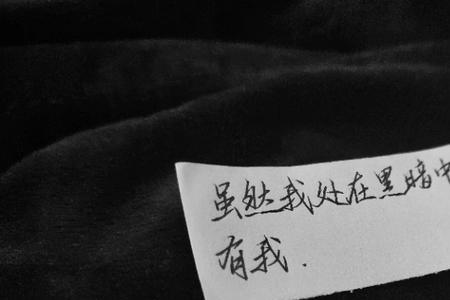 虽然我处在黑暗中
有我.